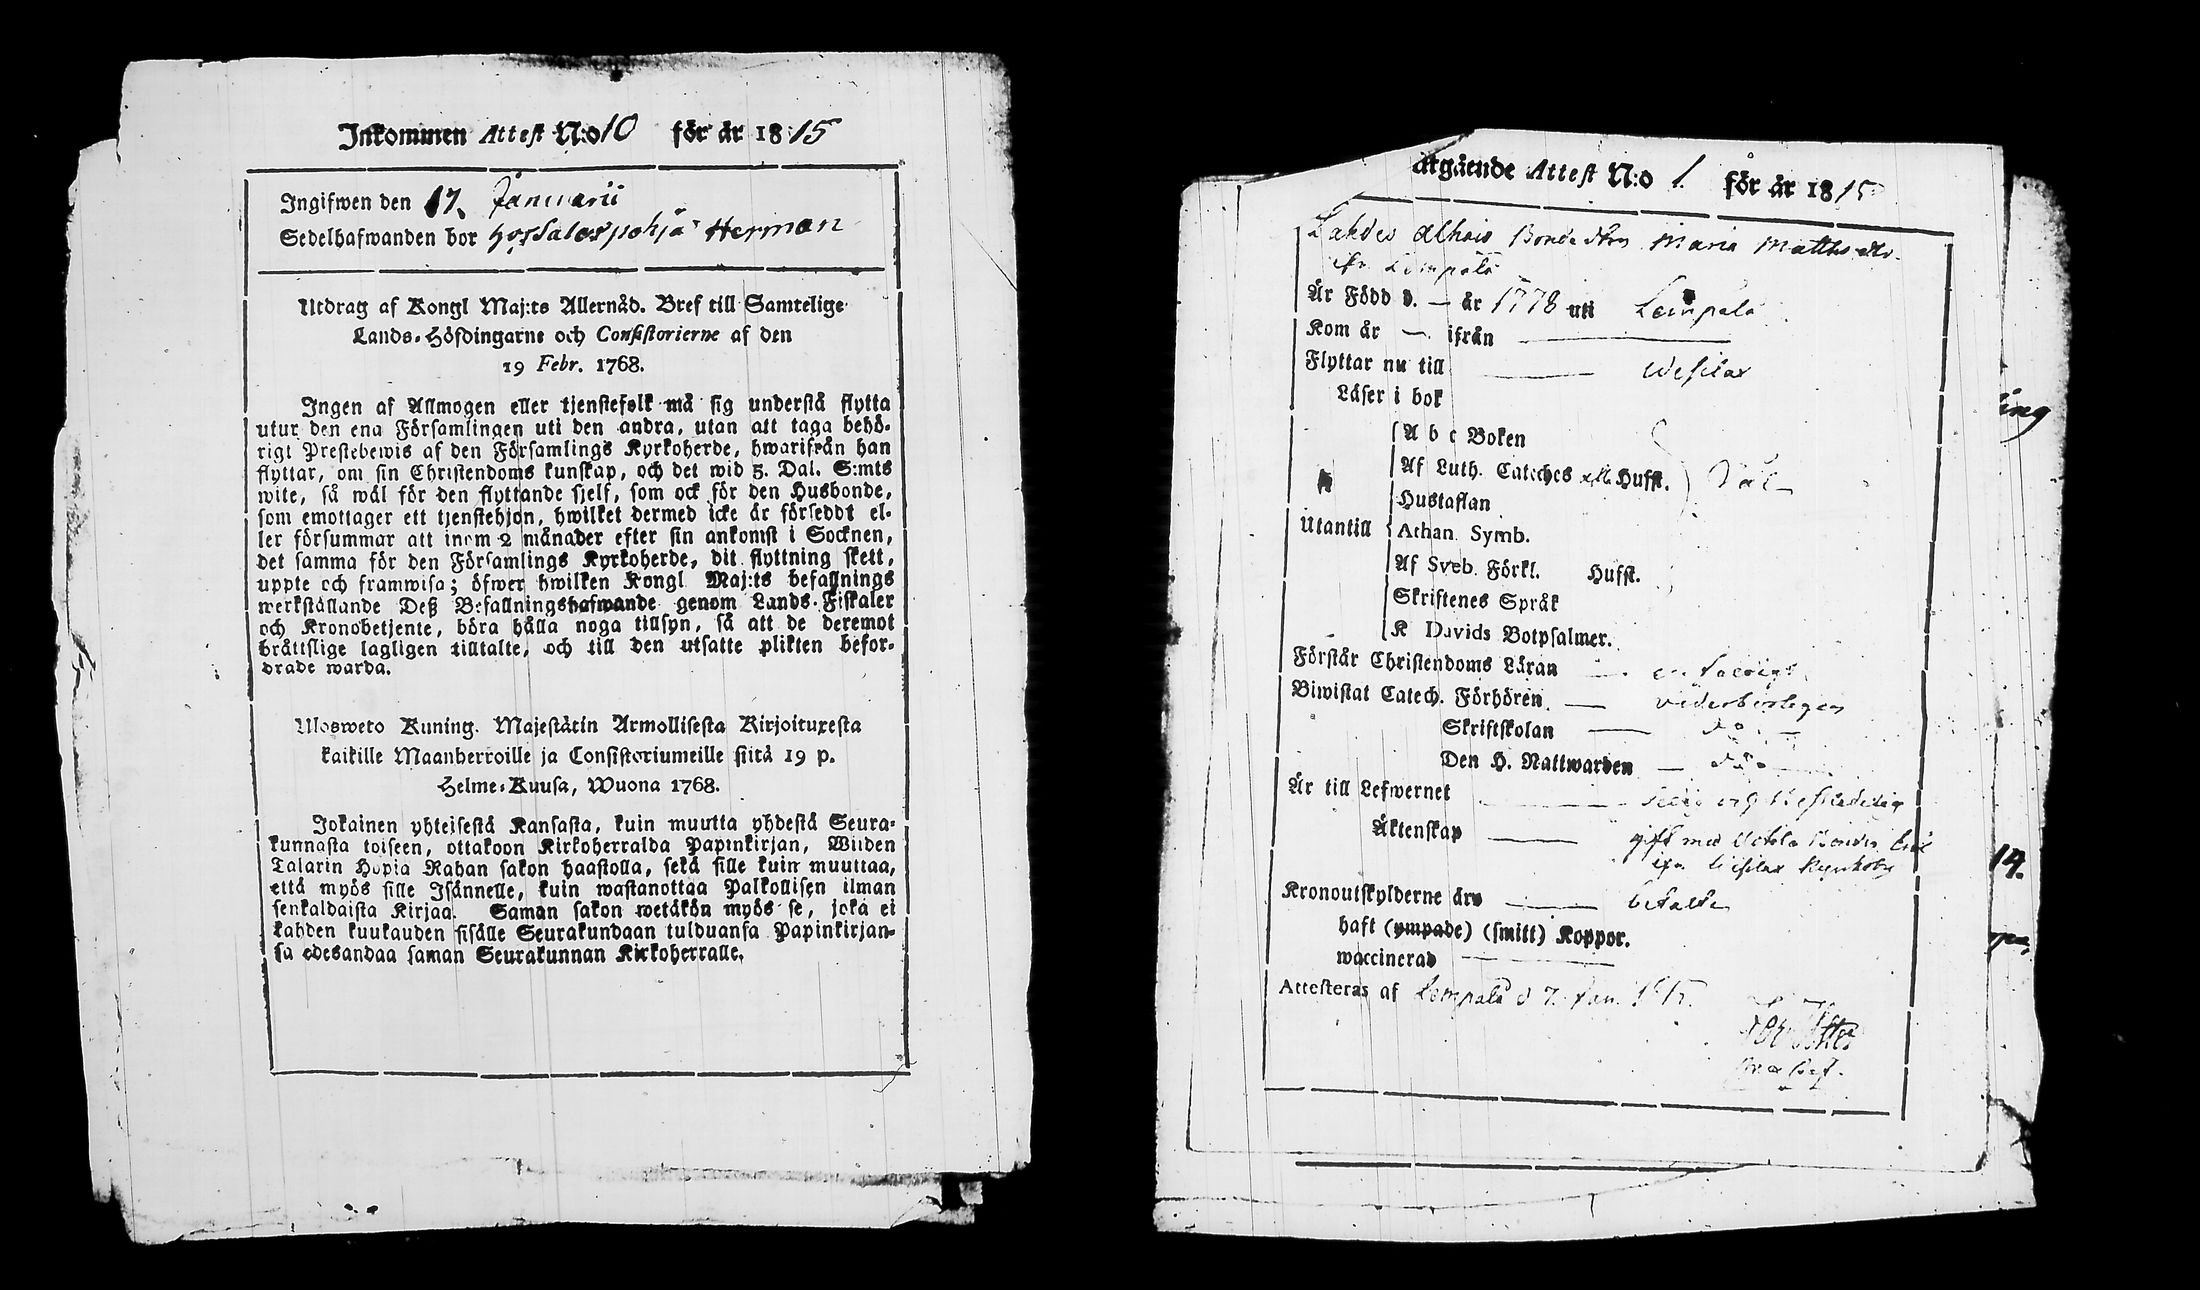 Inkommen Attest N:o 10 för år 1815
Ingifwen den 17. Januarii
Sedelhafwanden bor hos Salospohja Herman
Utdrag af Kongl Maj:ts Allernåd. Bref till Samtelige
Lands-Höfdingarne och Consistorierne af den
19 Febr. 1768.
Ingen af Allmogen eller tjenstefolk må sig understå flytta
utur den ena Församlingen uti den andra, utan att taga behö-
rigt Prestebewis af den Församlings Kyrkoherde, hwarifrån han
flyttar, om sin Christendoms kunskap, och det wid 5. Dal. S:mts
wite, så wäl för den flyttande sjelf, som ock för den Husbonde,
som emottager ett tjenstehjon, hwilket dermed icke är försedt el-
ler försummar att inom 2 månader efter sin ankomst i Socknen,
det samma för den Församlings Kyrkoherde, dit flyttning skett,
uppte och framwisa; öfwer hwilken Kongl Maj:ts befallnings
werkställande Deß Befallningshafwande genom Lands-Fiskaler
och Kronobetjente, böra hålla noga tillsyn, så att de deremot
bråttslige lagligen tilltalte, och till den utsatte plikten befor-
drade warda.
Ulosweto Kuning. Majestätin Armollisesta Kirjoituxesta
kaikille Maanherroille ja Consistoriumeille siitä 19 p.
Helme-Kuusa, Wuona 1768.
Jokainen yhteisestä Kansasta, kuin muutta yhdestä Seura-
kunnasta toiseen, ottakoon Kirkoherralda Papinkirjan, Wiiden
Talarin Hopia Rahan sakon haastolla, sekä sille kuin muuttaa,
että myös sille Isännelle, kuin wastanottaa Palkollisen ilman
senkaldaista Kirjaa. Saman sakon wetäkön myös se, joka ei
kahden kuukauden sisälle Seurakundaan tulduansa Papinkirjan-
sa edesandaa saman Seurakunnan Kirkoherralle.
åtgående Attest N:o 1. för år 1815
Lahdes Bonde Maria Matths
ifr. Lempälä
Är Född d. — år 1778 uti Lempälä
Kom år — ifrån —
Flyttar nu till — Wesilax
Läser i bok
A b c Boken
Af Luth. Cateches Husst.
Hustaflan
Utantill
Athan. Symb.
Af Sveb. Förkl. Husst.
Skriftenes Språk
K Davids Botpsalmer.
Förstår Christendoms Läran —
Biwistat Catech. Förhören. — vederbörligen
Skriftskolan — do —
Den H. Nattwarden — do —
Är till Lefwernet —
Äktenskap — gift med Bonden
ifr. Wesilax
Kronoutskylderne äro — betalte
haft (ympade) (smitt) Koppor.
waccinerad —
Attesteras af Lempälä d 7. Jan. 1815.
ing
14.